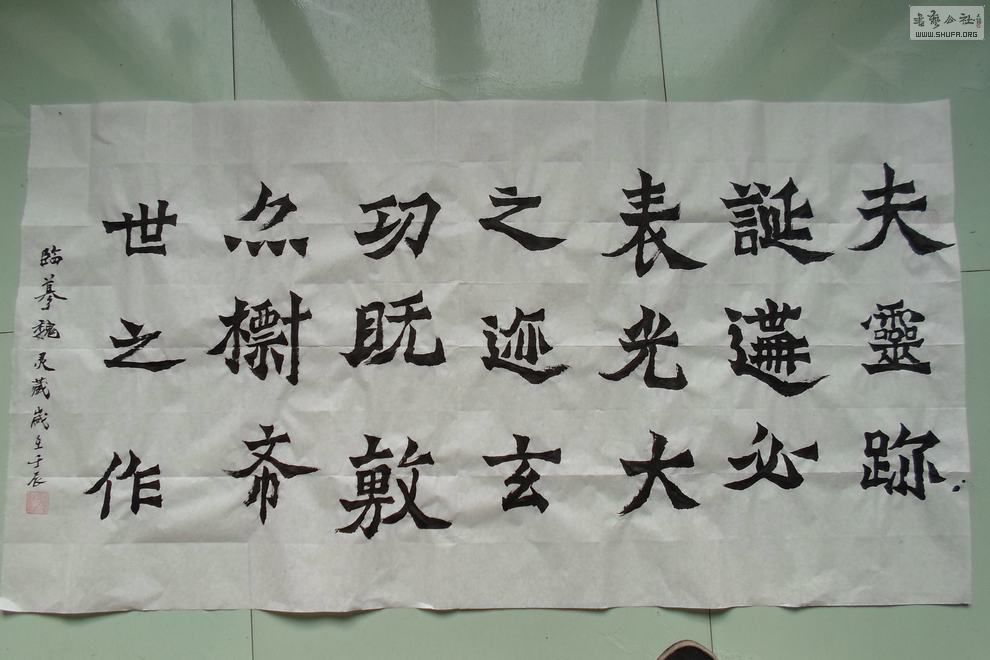 夫靈跡
誕遘必
表光大
之迹玄
功既敷
亦標希
世之作
臨摹魏灵藏歲在壬辰
書藝公社
WWW.SHUFA.ORG